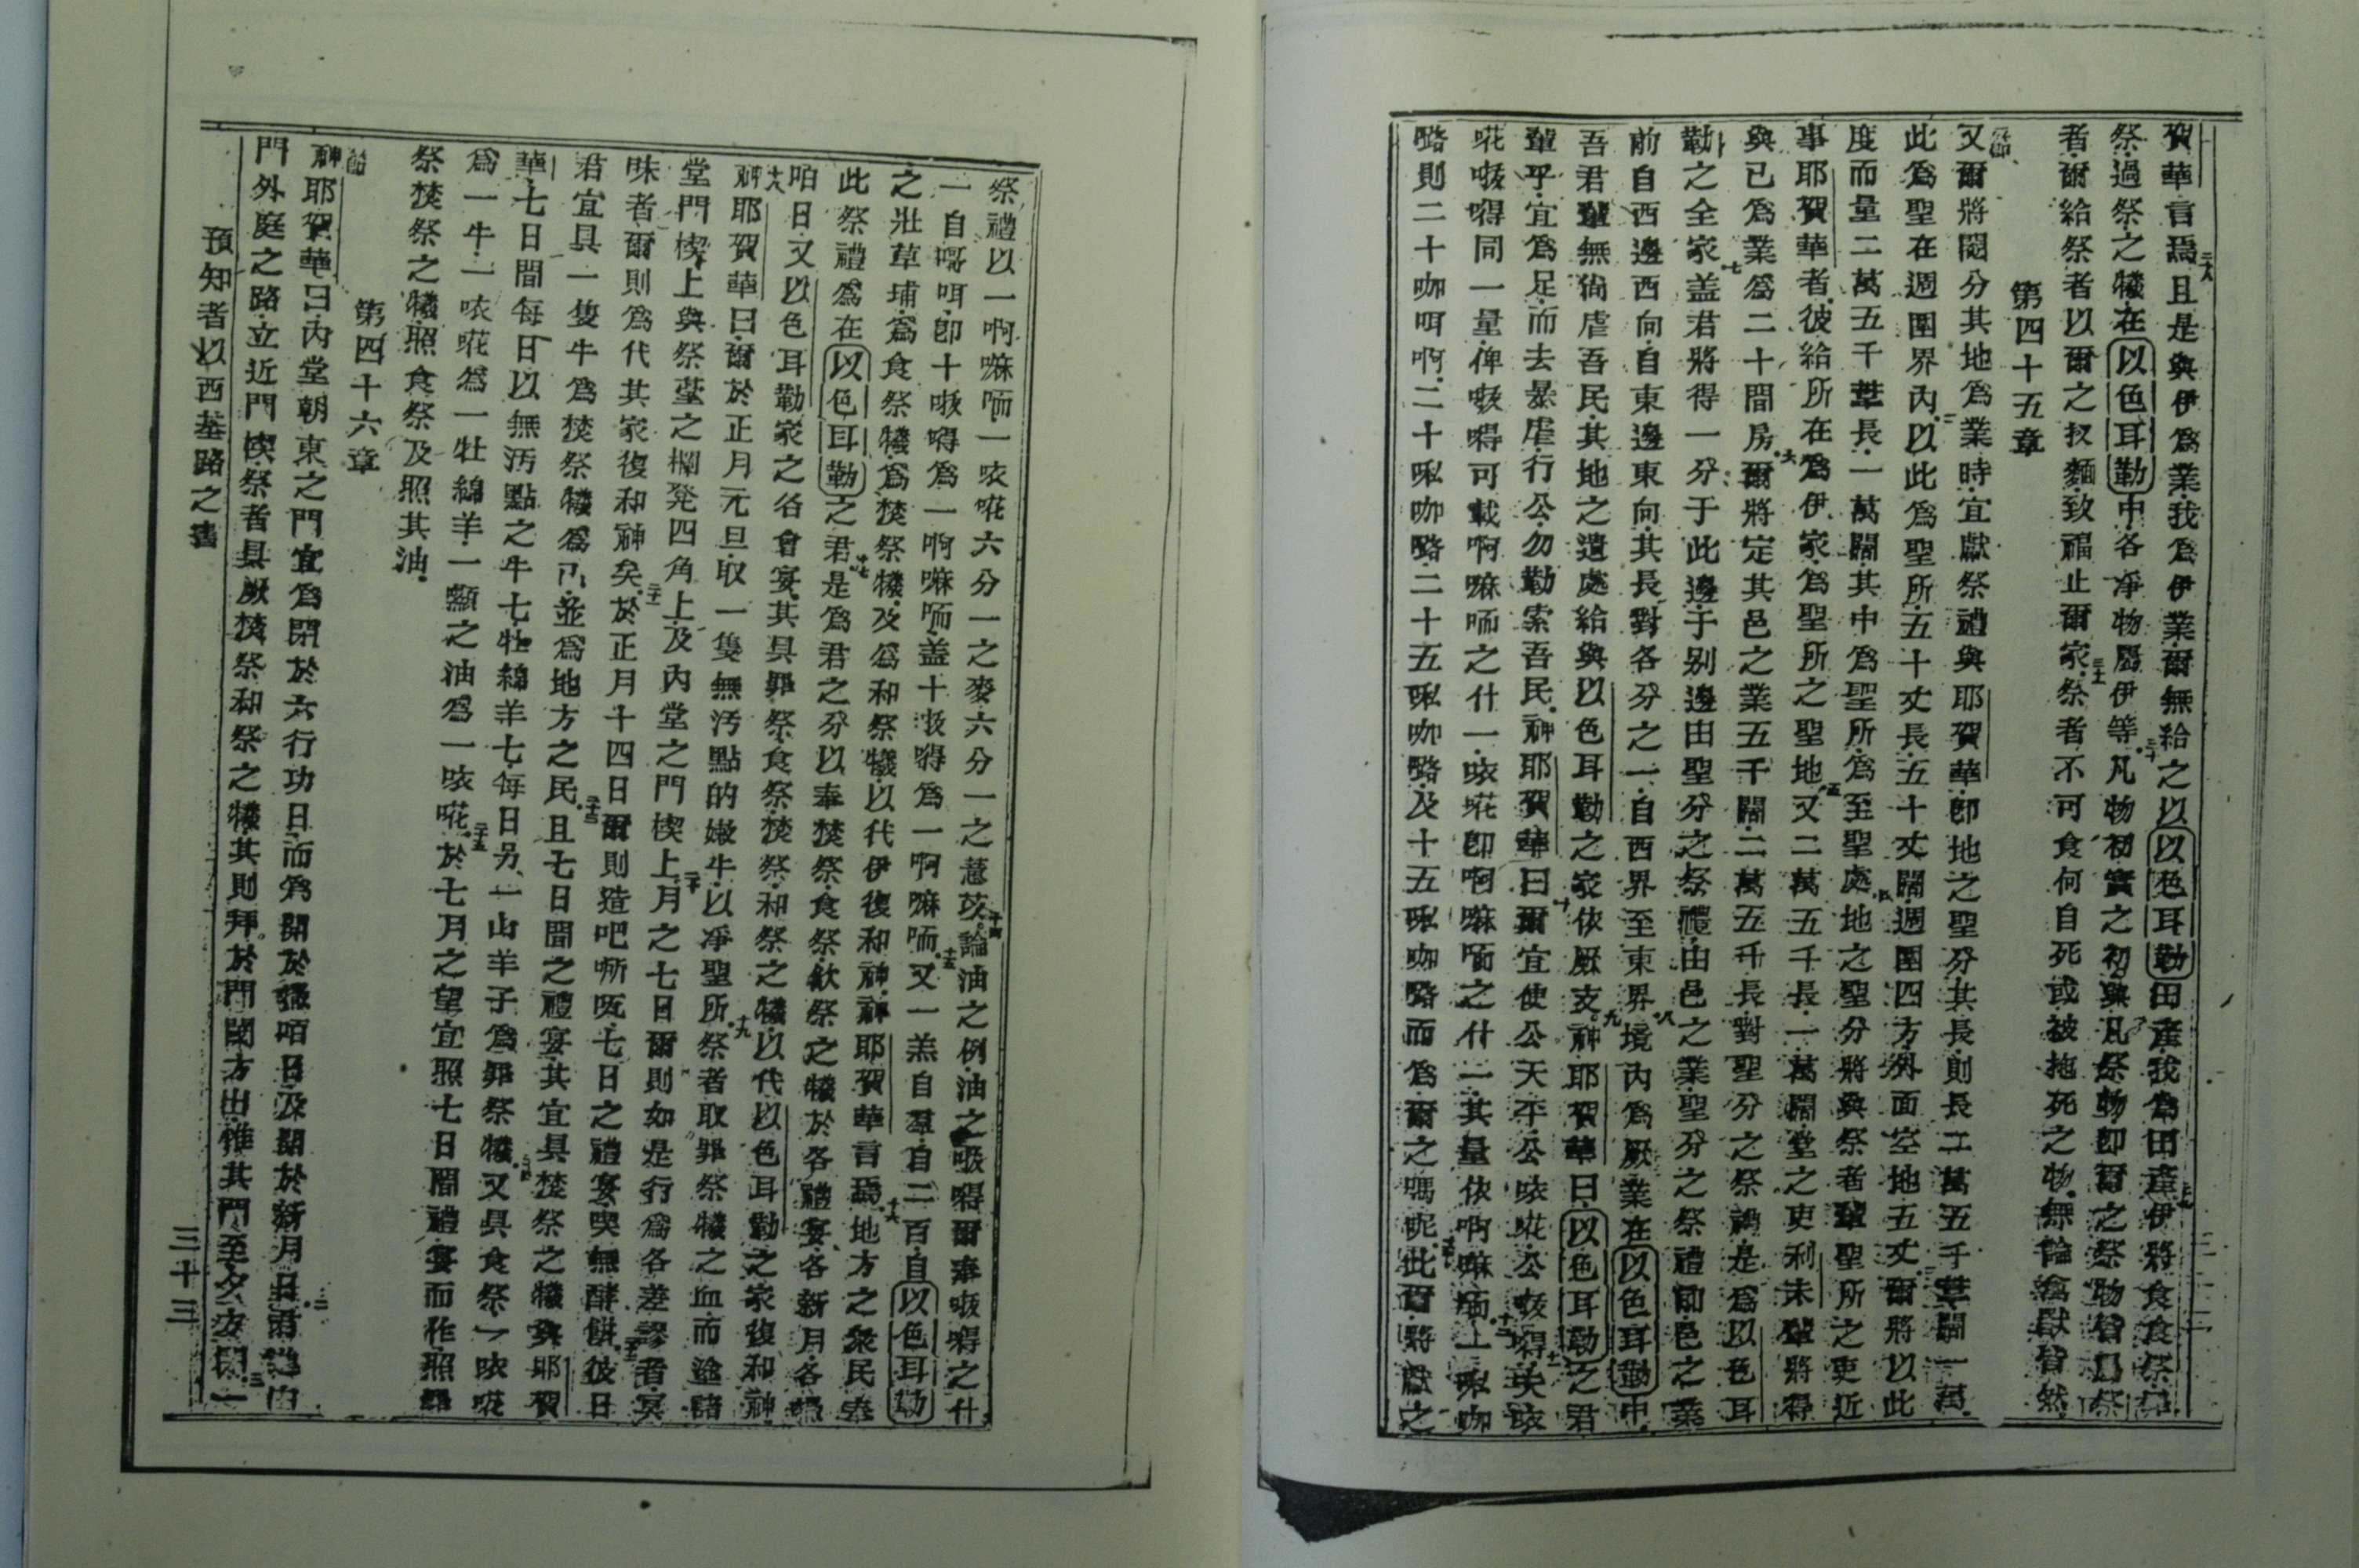 賀華言焉且是與伊爲業我爲伊業爾無給之以以色耳勒田產我爲田產伊將食食祭
祭過祭之犧在以色耳勒中各凈物屬伊等凡物初實之初與凡祭物卽爾之祭物皆爲祭
者爾給祭者以爾之麵致福止爾家祭者不可食何自死或被拖死之物無論禽獸皆然
第四十五章
又爾將鬮分其地爲業時宜獻祭禮與耶賀華卽地之聖分其長則長二萬五千葦闊一萬
此爲聖在週圍界內以此爲聖所五十丈長五十丈闊週圍四方外面空地五丈爾將以此
度而量二萬五千葦長一萬闊其中爲聖所爲至聖處地之聖分將與祭者輩聖所之吏近
事耶賀華者彼給所在爲伊家爲聖所之聖地又二萬五千長一萬闊堂之吏利未輩將得
與已爲業爲二十間房爾將定其邑之業五千闊二萬五千長對聖分之祭禮是爲以色耳
勒之全家盖君將得一分于此邊于別邊由聖分之祭禮由邑之業聖分之祭禮前邑之業
前自西邊西向自東邊東向其長對各分之一自西界至東界境內爲厥業在以色耳勒中
吾君輩無尙虐吾民其地之遺處給與以色耳勒之家依厥支神耶賀華曰以色耳勒之君
輩乎宜爲足而去暴虐行公勿勒索吾民神耶賀華曰爾宜使公天平公咴㖠公𠵽嘚夫咴
㖠𠵽嘚同一量俾𠵽嘚可載啊嘛㖇之什一咴㖠卽啊嘛㖇之什一其量依啊嘛㖇上㖀咖
咯則二十咖咡啊二十㖀咖咯二十五㖀咖咯及十五㖀咖咯而爲爾之嗎呢此爾將獻之
祭禮以一啊嘛㖇一咴㖠六分一之麥六分一之薏苡論油之例油之吸嘚爾奉𠵽嘚之什
一自嘅咡卽十𠵽嘚爲一啊嘛㖇盖十𠵽嘚爲一啊嘛㖇又一羔自羣自二百自以色耳勒
之壯草埔爲食祭犧爲焚祭犧及爲和祭犧以代伊復和神神耶賀華言焉地方之衆民奉
此祭禮爲在以色耳勒之君是爲君之分以奉焚祭食祭飲祭之犧於各禮宴各新月各㗑
咟日又以色耳勒家之各會宴其具罪祭食祭焚祭和祭之犧以代以色耳勒之家復和神
神耶賀華曰爾於正月元旦取一隻無汚點的嫩牛以凈聖所祭者取罪祭犧之血而塗諸
堂門楔上與祭臺之欄凳四角上及內堂之門楔上月之七日爾則如是行爲各差謬者冥
昧者爾則爲代其家復和神矣於正月十四日爾則造吧㗭㕸七日之禮宴喫無酵餅彼日
君宜具一隻牛爲焚祭犧爲己並爲地方之民且七日間之禮宴其宜具焚祭之犧與耶賀
華七日間每日以無汚點之牛七牡綿羊七每日另一山羊子爲罪祭犧又具食祭一咴㖠
爲一牛一咴㖠爲一牡綿羊一顯之油爲一咴㖠於七月之望宜照七日間禮宴而作照罪
祭焚祭之犧照食祭及照其油
第四十六章
神耶賀華曰內堂朝東之門宜爲閉於六行功日而爲開於㗑咟日及開於新月日君進由
門外庭之路立近門楔祭者具厥焚祭和祭之犧其則拜於門閾方出惟其門至夕方閉
預知者以西基路之書
三十三